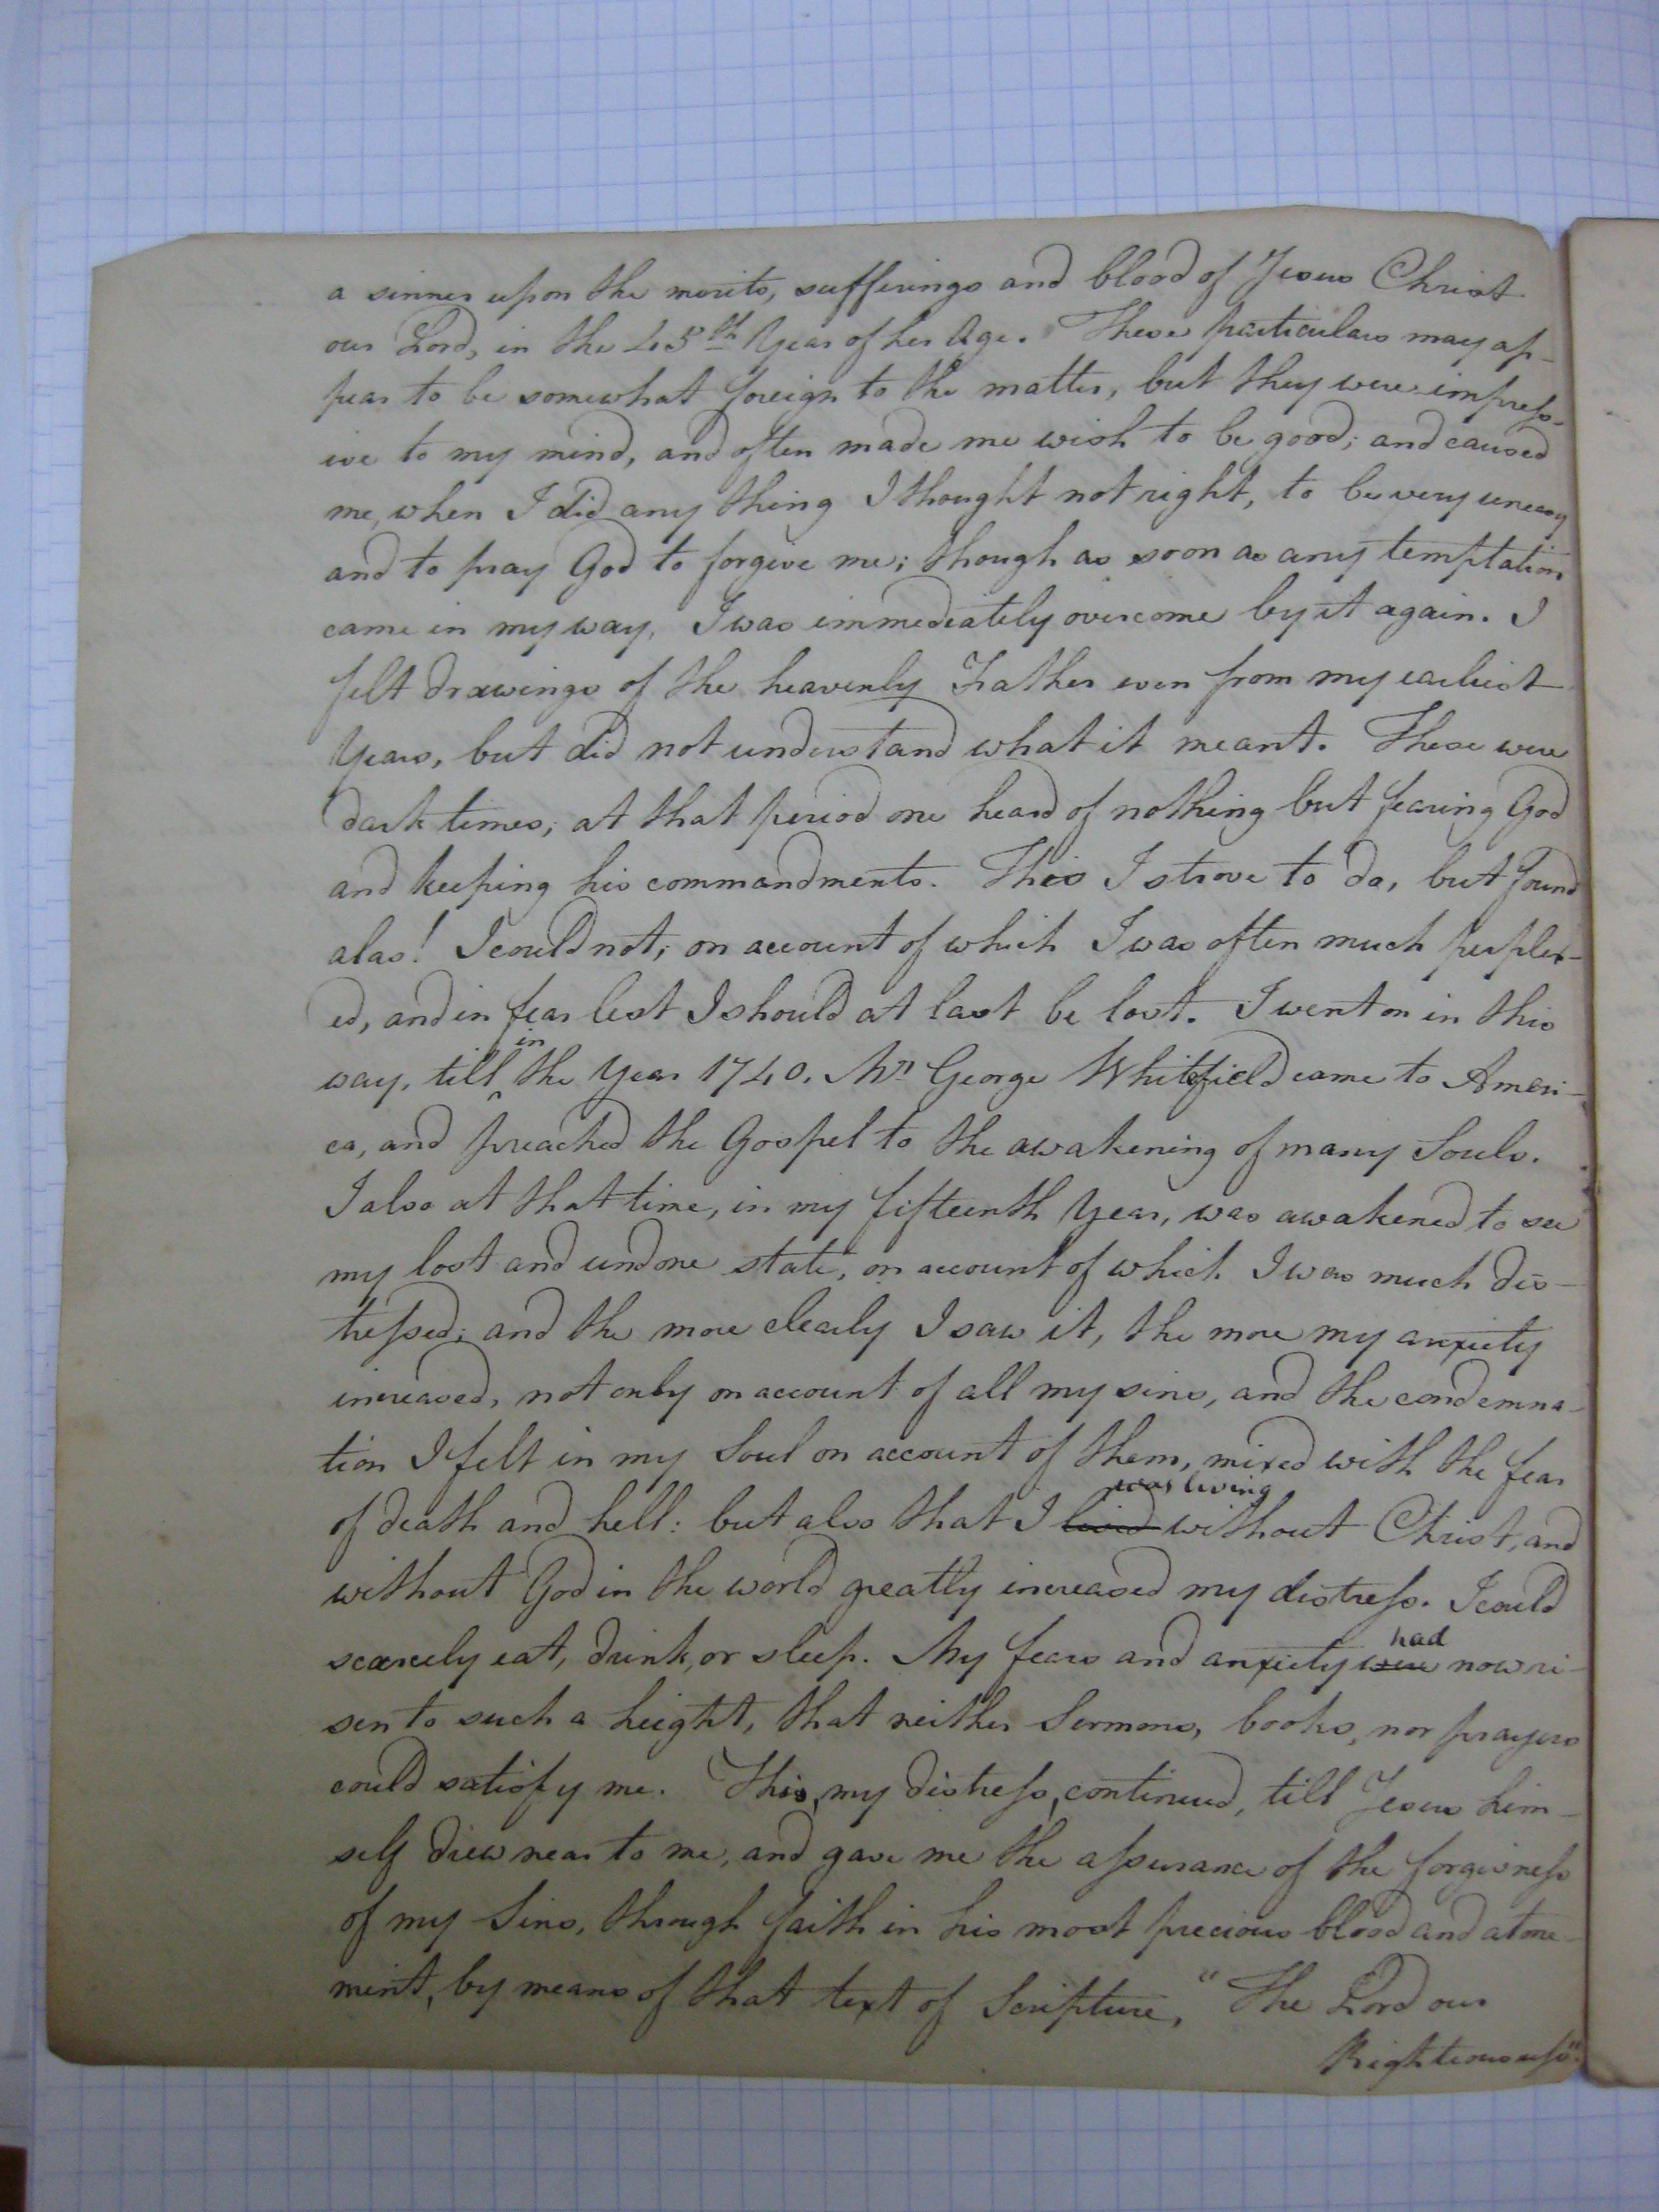 a sinner upon the merits, sufferings and blood of Jesus Christ
our Lord, in the 45th Year of her Age. These particulars may ap-
pear to be somewhat foreign to the matter, but they were impress-
ive to my mind, and often made me wish to be good; and caused
me, when I did any thing I thought not right, to be very uneasy
and to pray God to forgive me; though as soon as any temptation
came in my way, I was immediately overcome by it again. I
felt drawings of the heavenly Father even from my earliest
Years, but did not understand what it meant. These were
dark times; at that period one heard of nothing but fearing God
and keeping his commandments. This I strove to do, but found
alas! I could not; on account of which I was often much perplex-
ed, and in fear lest I should at last be lost. I went on in this
way, till in the Year 1740. Mr George Whitefield came to Ameri-
ca, and preached the Gospel to the awakening of many Souls.
I also at that time, in my fifteenth Year, was awakened to see
my lost and undone state, on account of which I was much dis-
tressed; and the more clearly I saw it, the more my anxiety
increased, not only on account of all my sins, and the condemna-
tion I felt in my Soul on account of them, mixed with the fear
was living
of death and hell: but also that I lived without Christ, and
without God in the world greatly increased my distress. I could
had
scarcely eat, drink, or sleep. My fears and anxiety were now ri-
sen to such a height, that neither Sermons, books, nor prayers
could satisfy me. This, my distress, continued, till Jesus him-
self drew near to me, and gave me the assurance of the forgivness
of my Sins, through faith in his most precious blood and atone-
ment, by means of that text of Scripture, "The Lord our
Righteousness".